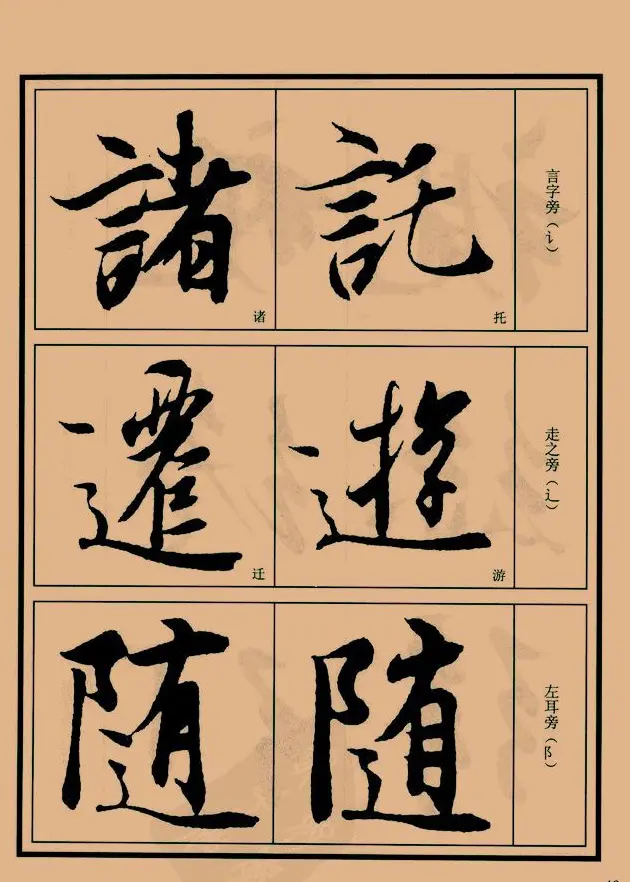 言字旁（讠）
託
托
諸
诸
走之旁（辶）
遊
游
遷
迁
左耳旁（阝）
随
随